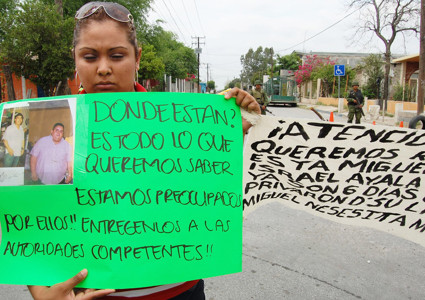 DONDE ESTAN?
ES TODO LO QUE
QUEREMOS SABER
ESTAMOS PREOCUPADOS
POR ELLOS!! ENTREGENLOS A LAS
AUTORIDADES COMPETENTES!!
¡ATENCIO
QUEREMOS
ESTA MIGUE
ISRAEL AYALA
PRIVARON 6 DIAS
D SU
MIGUEL NESESITA